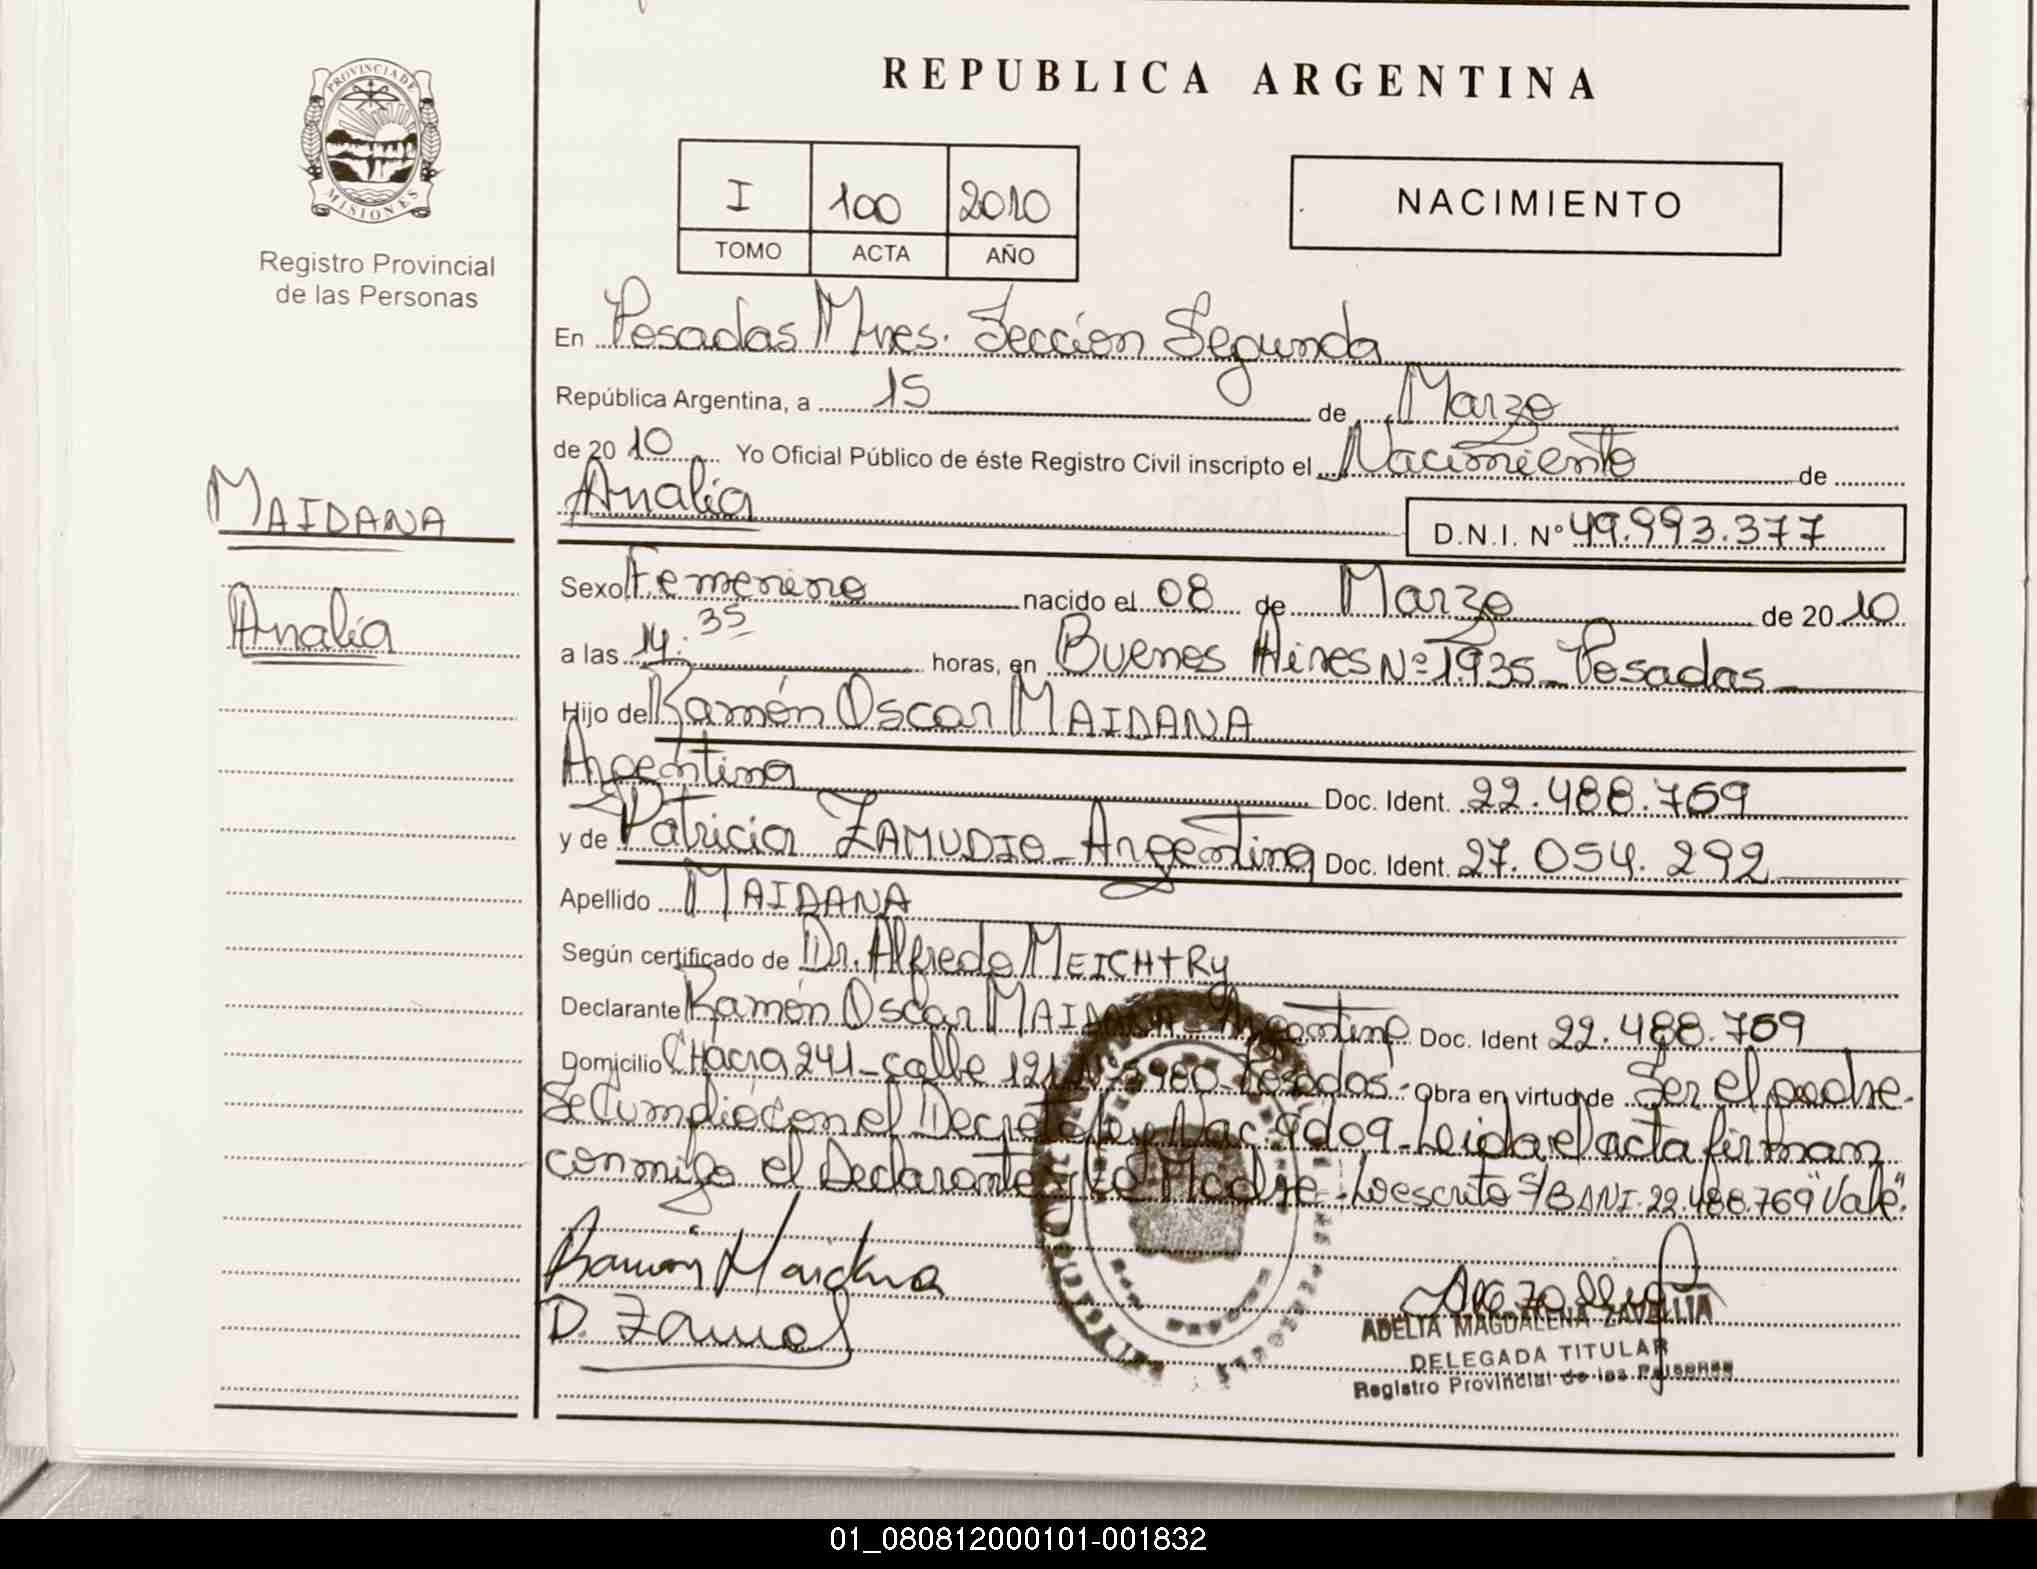 REPUBLICA ARGENTINA
PROVINCIA DE
MISIONES
Registro Provincial
de las Personas
I 100 2010
TOMO ACTA AÑO
NACIMIENTO
En Posadas Mnes. Sección Segunda
República Argentina, a 15 de Marzo
de 2010 Yo Oficial Público de éste Registro Civil inscripto el Nacimiento de
Analía
D.N.I. Nº 49.993.377
MAIDANA
Analía
Sexo Femenino nacido el 08 de Marzo de 2010
a las 14.35 horas, en Buenos Aires Nº 1935_ Posadas_
Hijo de Ramón Oscar MAIDANA
Argentina Doc. Ident. 22.488.769
y de Patricia ZAMUDIO_ Argentina Doc. Ident. 27.054.292
Apellido MAIDANA
Según certificado de Dr. Alfredo MEICHTRY
Declarante Ramón Oscar MAIDANA_ Argentino Doc. Ident 22.488.769
Domicilio CHacra 241_ calle 121 Posadas.- Obra en virtud de Ser el padre.
Se Cumplió con el Decreto Ley Nac. 9609_ Leida el acta firman
conmigo el Declarante y la Madre. Lo escrito S/B DNI. 22.488.769 "Vale".
Ramon Maidana
ADELIA MAGDALENA ZAVALLIA
DELEGADA TITULAR
Registro Provincial de las Personas
01_080812000101-001832